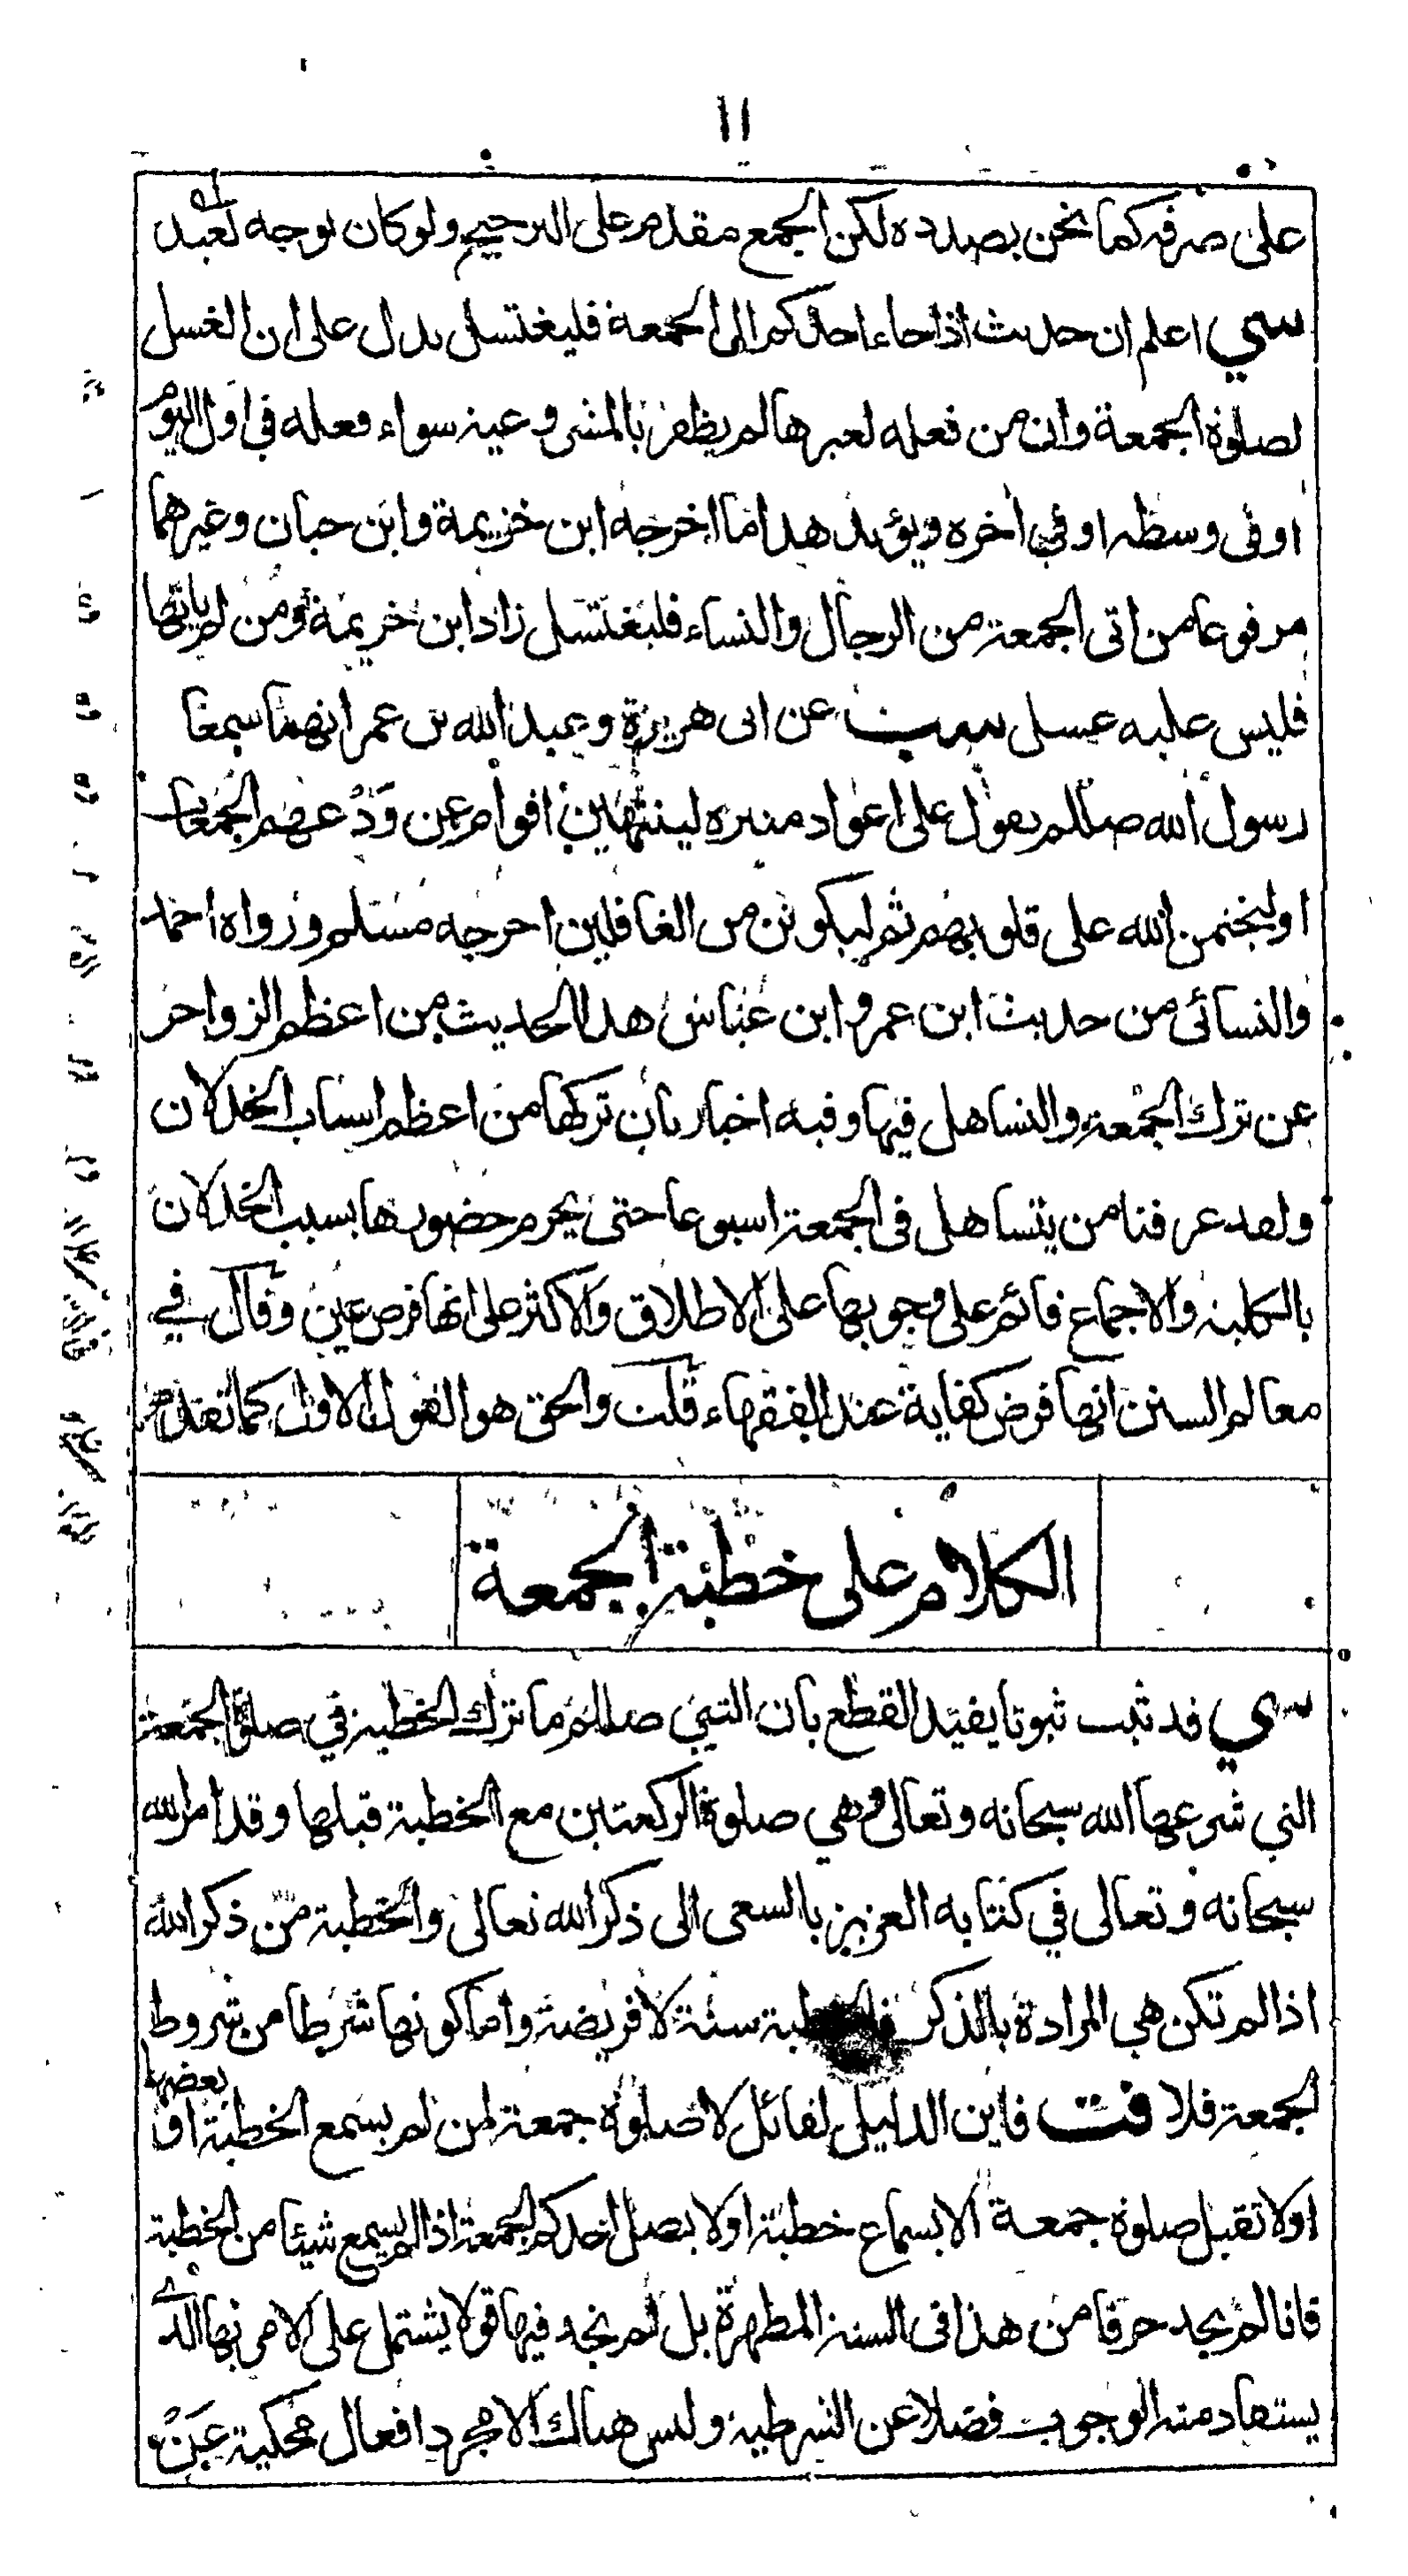 ١١
على صرفه كما نحن بصدده لكن الجمع مقدم على الترجيح ولو كان بوجه بعيد اه
سي اعلم ان حديث اذا جاء احدكم الى الجمعة فليغتسل يدل على ان الغسل
لصلوة الجمعة وان من فعله لغيرها لم يظفر بالمشروعية سواء فعله في اول اليوم
او في وسطه او في اخره ويؤيد هذا ما اخرجه ابن خزيمة وابن حبان وغيرهما
مرفوعا من اتى الجمعة من الرجال والنساء فليغتسل زاد ابن خزيمة ومن لم ياتها
فليس عليه غسل عن ابى هريرة وعبد الله بن عمر انهما سمعا
رسول الله صللم يقول على اعواد منبره لينتهين اقوام عن ودعهم الجمعات
او ليختمن الله على قلوبهم ثم ليكونن من الغافلين اخرجه مسلم ورواه احمد
والنسائى من حديث ابن عمر وابن عباس هذا الحديث من اعظم الزواجر
عن ترك الجمعة والتساهل فيها وفيه اخبار بان تركها من اعظم اسباب الخذلان
ولقد عرفنا من يتساهل فى الجمعة اسبوعا حتى يحرم حضورها بسبب الخذلان
بالكلية والاجماع قائم على وجوبها على الاطلاق والاكثر على انها فرض عين وقال في
معالم السنن انها فرض كفاية عند الفقهاء قلت والحق هو القول الاول كما تقدم
الكلام على خطبة الجمعة
سي قد ثبت ثبوتا يفيد القطع بان النبي صللم ما ترك الخطبة في صلوة الجمعة
التي شرعها الله سبحانه وتعالى وهي صلوة الركعتين مع الخطبة قبلها وقد امر الله
سبحانه وتعالى في كتابه العزيز بالسعى الى ذكر الله تعالى والخطبة من ذكر الله
اذا لم تكن هي المرادة بالذكر فالخطبة سنة لا فريضة واما كونها شرطا من شروط
الجمعة فلا قت فاين الدليل لقائل لا صلوة جمعة لمن لم يسمع الخطبة او بعضها
او لا تقبل صلوة جمعة الا بسماع خطبة او لا يصل احدكم الجمعة اذا لم يسمع شيئا من الخطبة
فانا لم نجد حرفا من هذا فى السنة المطهرة بل لم نجد فيها قولا يشتمل على الامر بها الذي
يستفاد منه الوجوب فضلا عن الشرطية وليس هناك الا مجرد افعال محكية عن